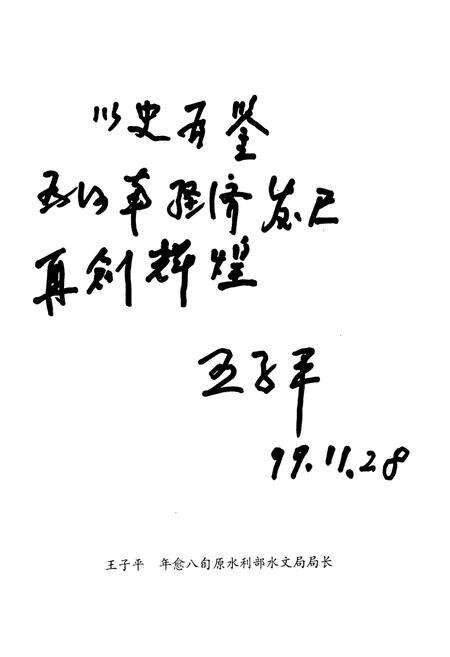 以史为鉴
经济发展
再创辉煌
王子平
99.11.28
王子平 年愈八旬原水利部水文局局长